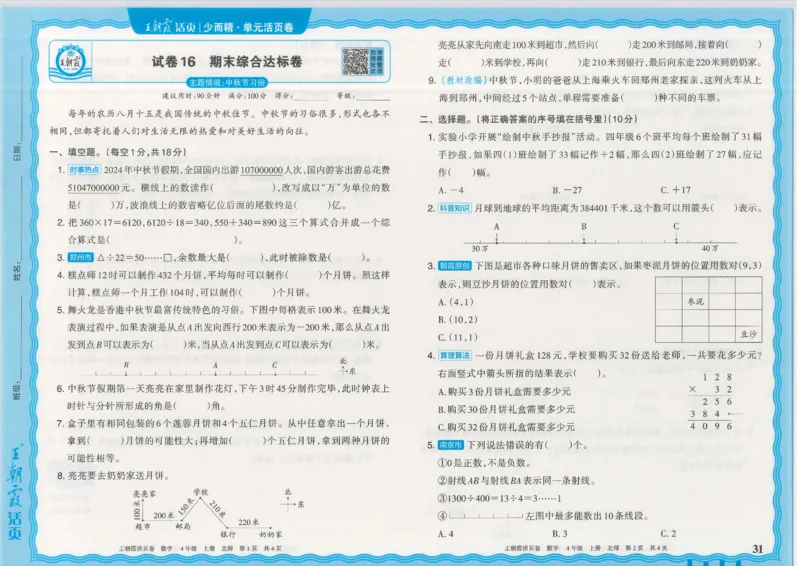 王朝霞活页 | 少而精·单元活页卷
王朝霞
试卷16 期末综合达标卷
主题情境:中秋节习俗
建议用时:90分钟 满分:100分 得分:____ 等级:____
每年的农历八月十五是我国传统的中秋佳节。中秋节的习俗很多,形式也各不
相同,但都寄托着人们对生活无限的热爱和对美好生活的向往。
一、填空题。(每空1分,共18分)
1. 时事热点 2024年中秋节假期,全国国内出游107000000人次,国内游客出游总花费
51047000000元。横线上的数读作( ),改写成以“万”为单位的数
是( )万,波浪线上的数省略亿位后面的尾数约是( )亿。
2. 把360×17=6120,6120÷18=340,550+340=890这三个算式合并成一个综
合算式是( )。
3. 郑州市 △÷22=50……□,余数最大是( ),此时被除数是( )。
4. 糕点师12时可以制作432个月饼,平均每时可以制作( )个月饼。照这样
计算,糕点师一个月工作104时,可以制作( )个月饼。
5. 舞火龙是香港中秋节最富传统特色的习俗。下图中每格表示100米。在舞火龙
表演过程中,如果表演是从点A出发向西行200米表示为-200米,那么从点A出
发到点B可以表示为( )米,当从点A出发到点C可以表示为( )米。
B A C 北 东
6. 中秋节假期第一天亮亮在家里制作花灯,下午3时45分制作完毕,此时钟表上
时针与分针所形成的角是( )角。
7. 盒子里有相同包装的6个莲蓉月饼和4个五仁月饼。从中任意拿出一个月饼,
拿到( )月饼的可能性大;再增加( )个五仁月饼,拿到两种月饼的
可能性相等。
8. 亮亮要去奶奶家送月饼。
亮亮家 学校 北 东
100米 200米 150米 210米 220米
超市 邮局 银行 奶奶家
王朝霞活页卷 数学 4年级 上册 北师 第1页 共4页
亮亮从家先向南走100米到超市,然后向( )走200米到邮局,接着向( )
走( )米到学校,再向( )走210米到银行,最后向东走220米到奶奶家。
9. [教材改编] 中秋节,小明的爸爸从上海乘火车回郑州老家探亲,这列火车从上
海到郑州,中间经过5个站点,单程需要准备( )种不同的车票。
二、选择题。(将正确答案的序号填在括号里)(10分)
1. 实验小学开展“绘制中秋手抄报”活动。四年级6个班平均每个班绘制了31幅
手抄报,如果四(1)班绘制了33幅记作+2幅,那么四(2)班绘制了27幅,应记
作( )幅。
A. -4 B. -27 C. +17
2. 科普知识 月球到地球的平均距离为384401千米,这个数可以用箭头( )表示。
A B C
30万 40万
3. 朝霞原创 下图是超市各种口味月饼的售卖区,如果枣泥月饼的位置用数对(9,3)
表示,则豆沙月饼的位置用数对( )表示。
A. (4,1)
B. (10,2)
C. (11,1)
枣泥
豆沙
4. 算理算法 一份月饼礼盒128元,学校要购买32份送给老师,一共要花多少元?
右面竖式中箭头所指的结果表示( )。
A. 购买3份月饼礼盒需要多少元
B. 购买30份月饼礼盒需要多少元
C. 购买32份月饼礼盒需要多少元
1 2 8
× 3 2
2 5 6
3 8 4 ←
4 0 9 6
5. 南京市 下列说法错误的有( )个。
①0是正数,不是负数。
②射线AB与射线BA表示同一条射线。
③1300÷400=13÷4=3……1
④ 左图中最多能数出10条线段。
A. 4 B. 3 C. 2
王朝霞活页卷 数学 4年级 上册 北师 第2页 共4页
31
日期:
姓名:
班级:
王朝霞活页